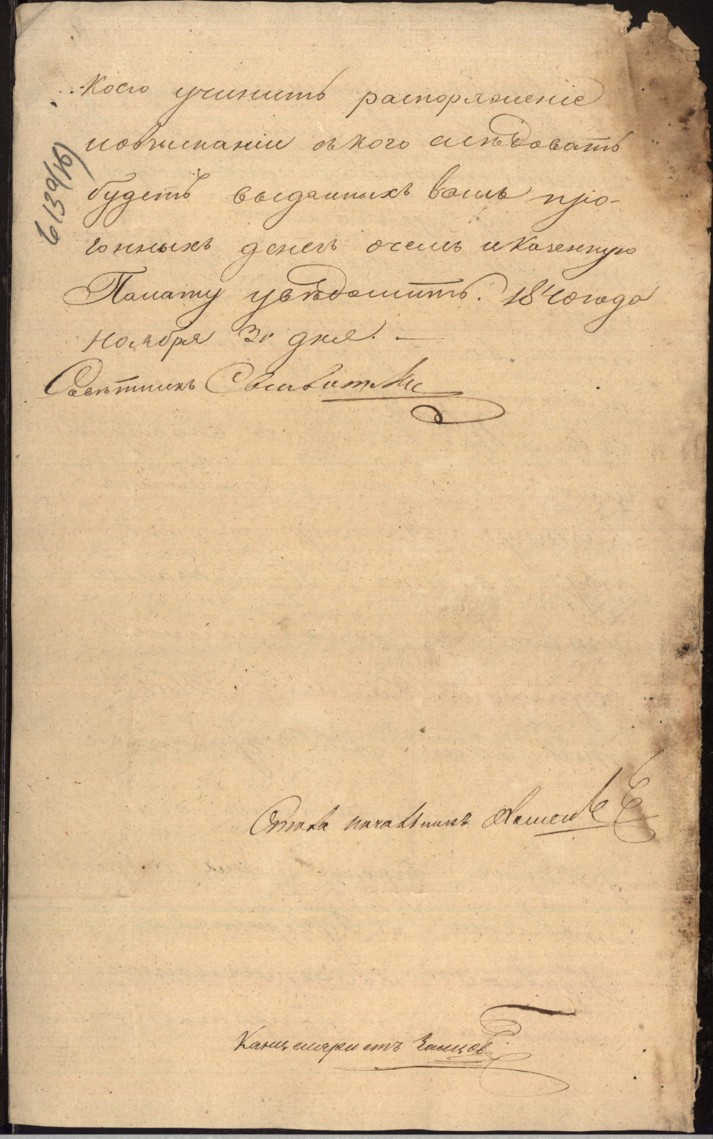 коею учинить распоряженіе
повзысканіи ского следовать
будетъ выданныхъ вамъ про-
гонныхъ денегъ очемъ и Казенную
Палату уведомить. 1840 года
Ноября 30 дня. —
Советникъ
Стола начальникъ
Канцеляристъ
6139(16)